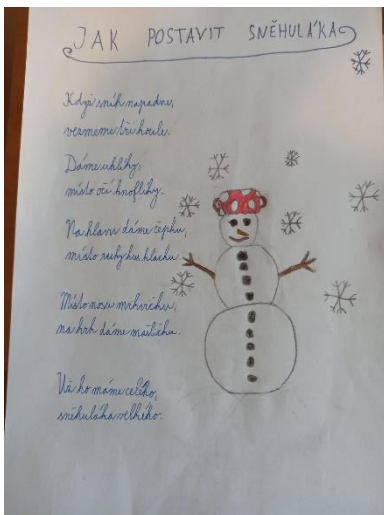 JAK POSTAVIT SNĚHULÁKA
Když sníh napadne,
vezmeme tři koule.
Dáme uhlíky,
místo očí knoflíky.
Na hlavu dáme čepku,
místo ruky kus klacku.
Místo nosu mrkvičku,
na krk dáme mašličku.
Už ho máme celého,
sněhuláka velkého.